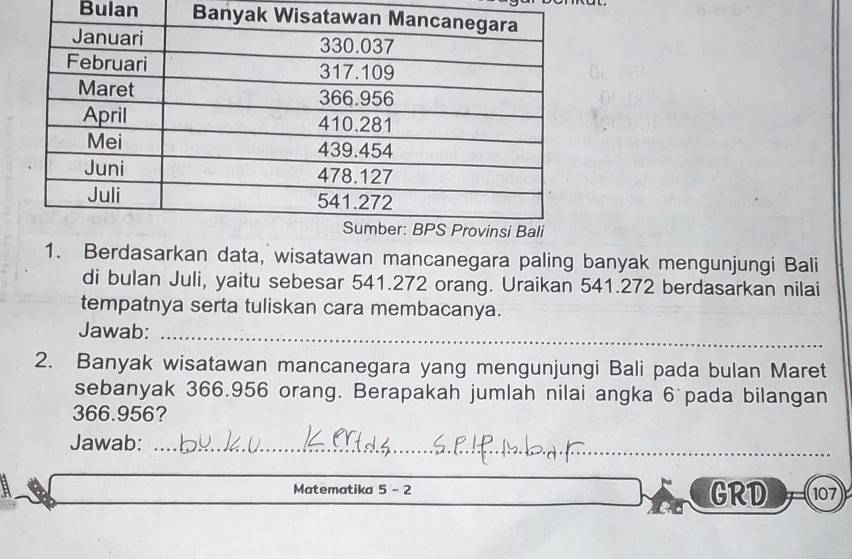 Bulan Banyak Wisatawan Mancanegara
Januari 330.037
Februari 317.109
Maret 366.956
April 410.281
Mei 439.454
Juni 478.127
Juli 541.272
Sumber: BPS Provinsi Bali
1. Berdasarkan data, wisatawan mancanegara paling banyak mengunjungi Bali
di bulan Juli, yaitu sebesar 541.272 orang. Uraikan 541.272 berdasarkan nilai
tempatnya serta tuliskan cara membacanya.
Jawab:
2. Banyak wisatawan mancanegara yang mengunjungi Bali pada bulan Maret
sebanyak 366.956 orang. Berapakah jumlah nilai angka 6 pada bilangan
366.956?
Jawab: buku kertas
Matematika 5 - 2
GRD 107